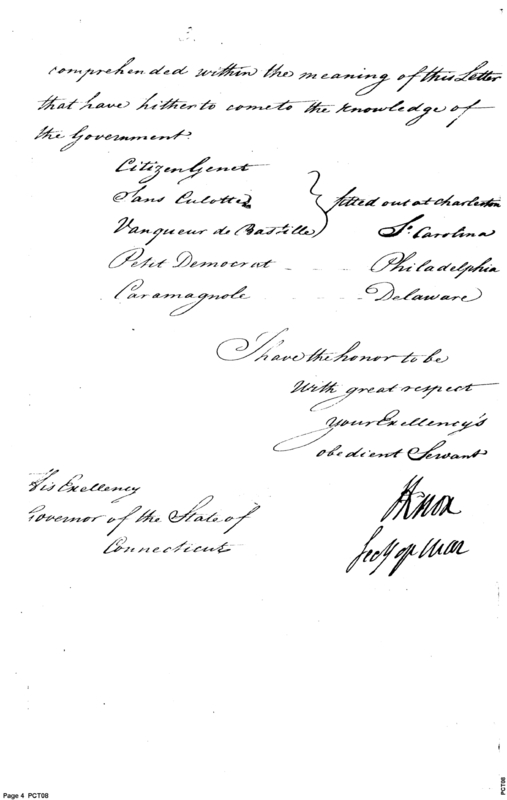 3.
comprehended within the meaning of this Letter
that have hitherto come to the knowledge of
the Government.
Citizen Genet
Sans Culotte
Vanqueur de Bastille } fitted out at Charleston
S. Carolina
Petit Democrat - - Philadelphia
Caramagnole - - - Delaware
I have the honor to be
With great respect
your Exellency's
obedient Servant
His Exellency
Governor of the State of
Connecticut
HKnox
Secy of War
Page 4 PCT08
PCT08